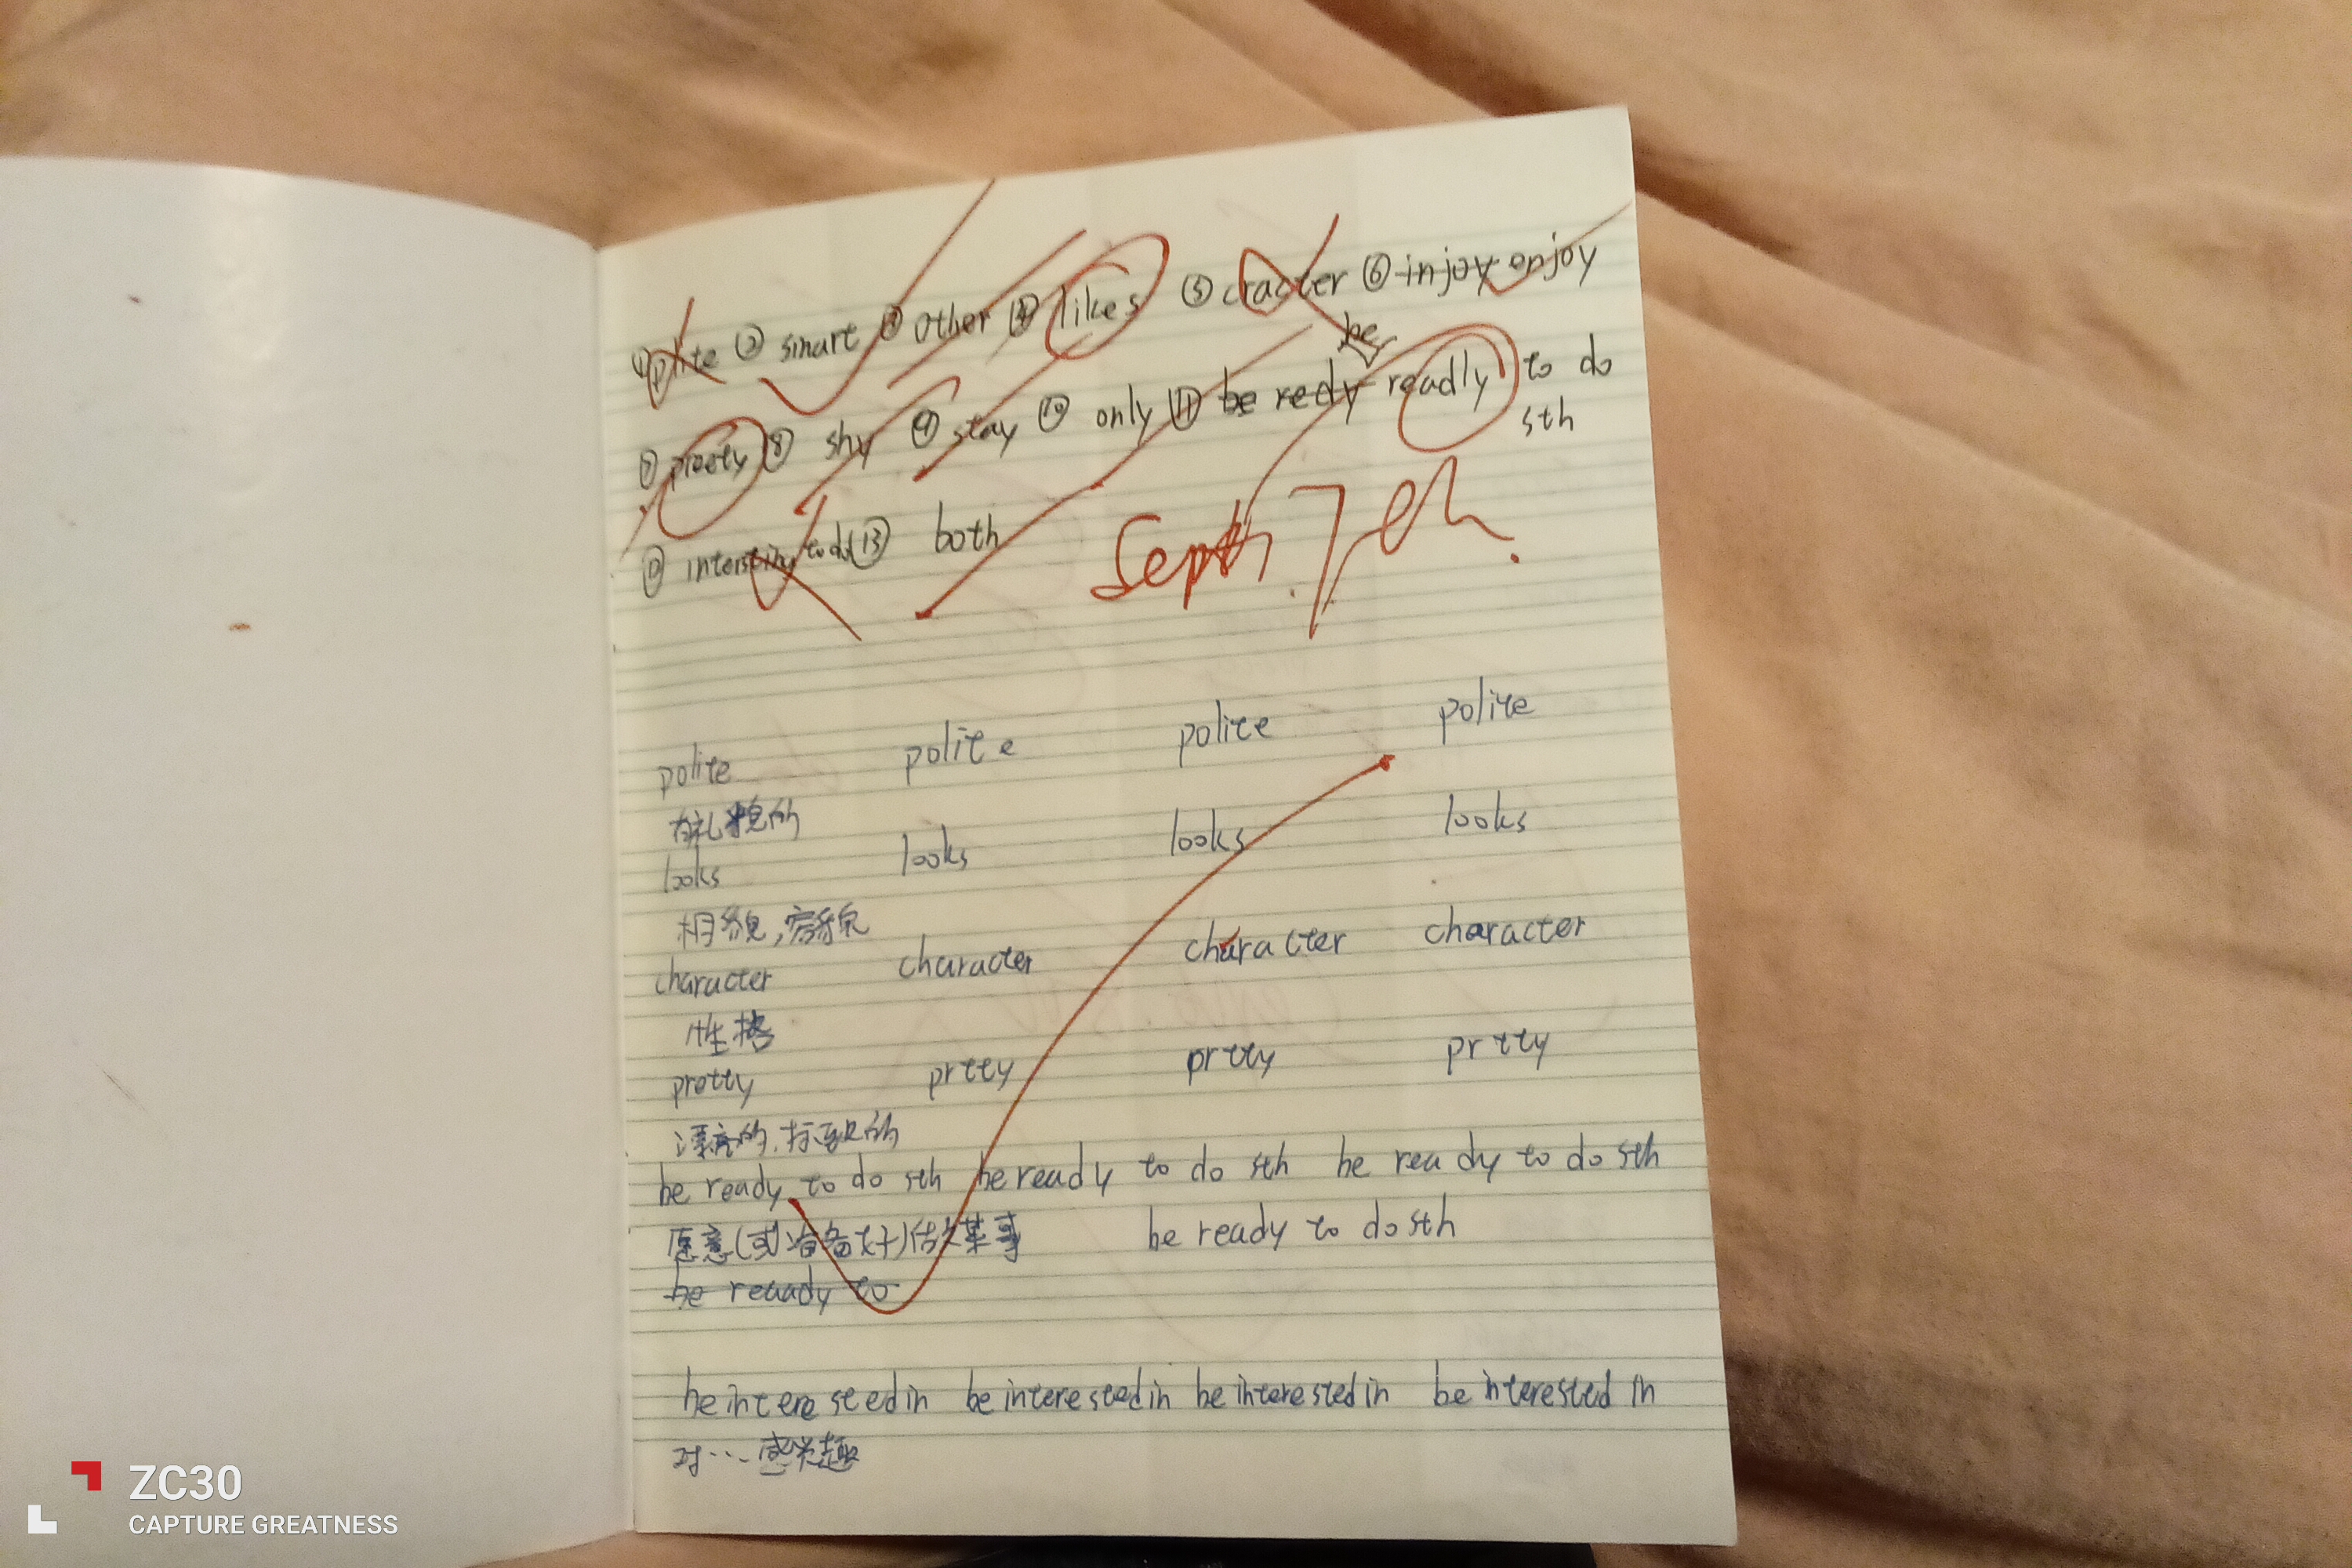 ① plite ② smart ③ other ④ likes ⑤ cracter ⑥ injoy enjoy
be
⑦ preety ⑧ shy ⑨ stay ⑩ only ⑪ be redy readly to do
sth
intersting to do ⑬ both
Sept. 7th.
polite polite polite polite
有礼貌的
looks looks looks looks
相貌,容貌
character character character character
性格
pretty prtty prtty prtty
漂亮的,标致的
be ready to do sth be ready to do sth be ready to do sth
愿意(或准备好)做某事 be ready to do sth
be reaady to
be interested in be interested in be interested in be interested in
对…感兴趣
ZC30
CAPTURE GREATNESS